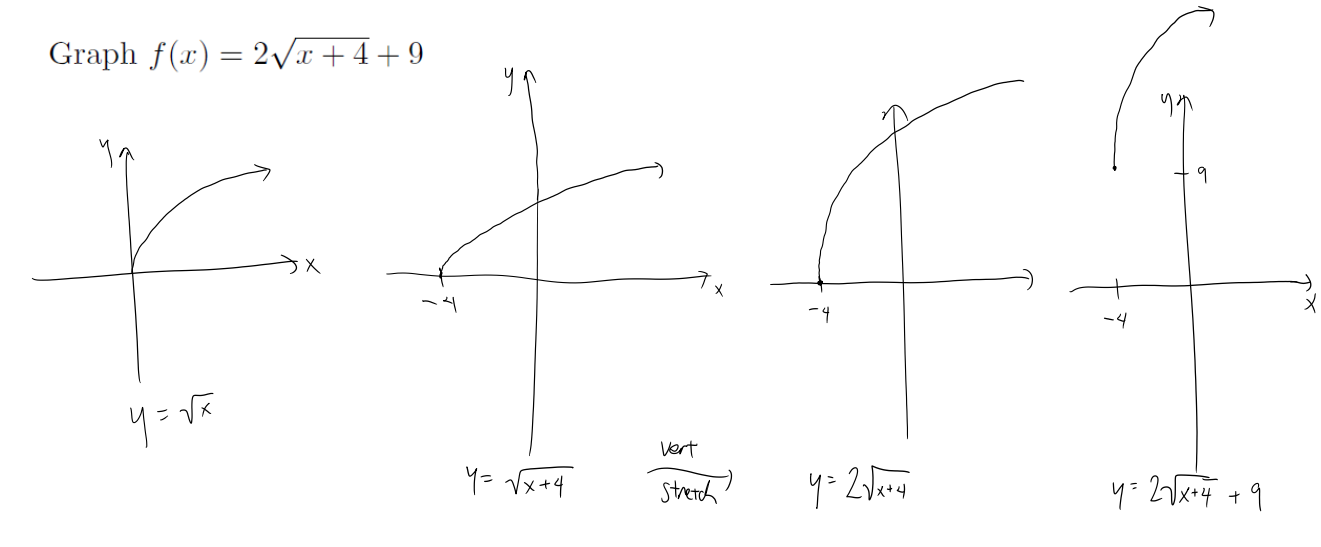 Graph f(x) = 2√(x + 4) + 9
y
x
y = √x
y
x
-4
y = √(x+4)
vert
stretch
-4
y = 2√(x+4)
y
9
x
-4
y = 2√(x+4) + 9